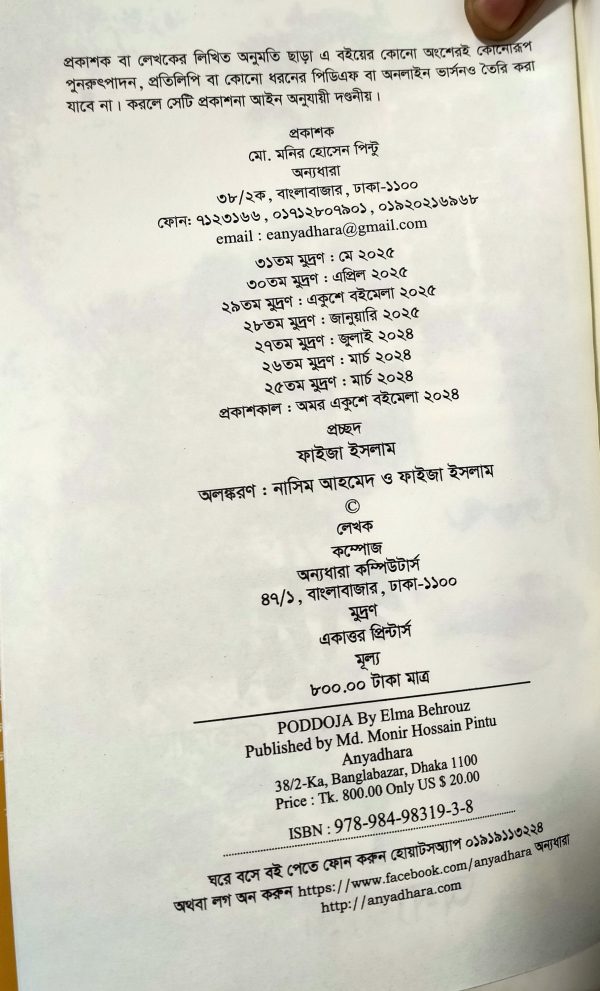 প্রকাশক বা লেখকের লিখিত অনুমতি ছাড়া এ বইয়ের কোনো অংশেরই কোনোরূপ
পুনরুৎপাদন, প্রতিলিপি বা কোনো ধরনের পিডিএফ বা অনলাইন ভার্সনও তৈরি করা
যাবে না। করলে সেটি প্রকাশনা আইন অনুযায়ী দণ্ডনীয়।
প্রকাশক
মো. মনির হোসেন পিন্টু
অন্যধারা
৩৮/২ক, বাংলাবাজার, ঢাকা-১১০০
ফোন: ৭১২৩১৬৬, ০১৭১২৮০৭৯০১, ০১৯২০২১৬৯৬৮
email : eanyadhara@gmail.com
৩১তম মুদ্রণ : মে ২০২৫
৩০তম মুদ্রণ : এপ্রিল ২০২৫
২৯তম মুদ্রণ : একুশে বইমেলা ২০২৫
২৮তম মুদ্রণ : জানুয়ারি ২০২৫
২৭তম মুদ্রণ : জুলাই ২০২৪
২৬তম মুদ্রণ : মার্চ ২০২৪
২৫তম মুদ্রণ : মার্চ ২০২৪
প্রকাশকাল : অমর একুশে বইমেলা ২০২৪
প্রচ্ছদ
ফাইজা ইসলাম
অলঙ্করণ : নাসিম আহমেদ ও ফাইজা ইসলাম
©
লেখক
কম্পোজ
অন্যধারা কম্পিউটার্স
৪৭/১, বাংলাবাজার, ঢাকা-১১০০
মুদ্রণ
একাত্তর প্রিন্টার্স
মূল্য
৮০০.০০ টাকা মাত্র
PODDOJA By Elma Behrouz
Published by Md. Monir Hossain Pintu
Anyadhara
38/2-Ka, Banglabazar, Dhaka 1100
Price : Tk. 800.00 Only US $ 20.00
ISBN : 978-984-98319-3-8
ঘরে বসে বই পেতে ফোন করুন হোয়াটসঅ্যাপ ০১৯১৯১১৩২২৪
অথবা লগ অন করুন https://www.facebook.com/anyadhara অন্যধারা
http://anyadhara.com